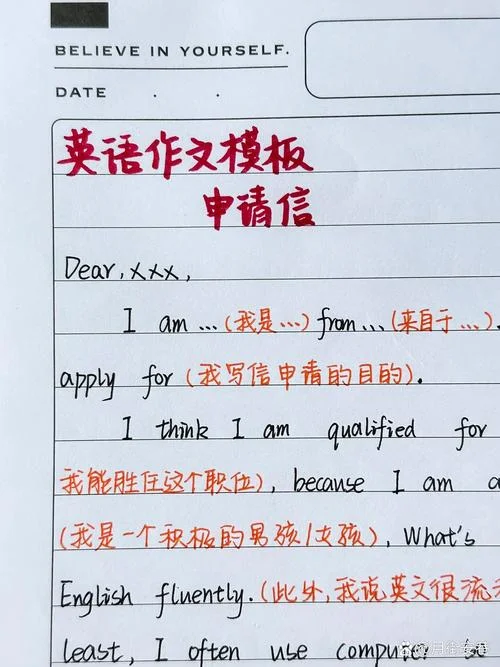 BELIEVE IN YOURSELF.
DATE . .
英语作文模板
申请信
Dear, xxx,
I am ... (我是...) from ... (来自于 ...).
apply for (我写信申请的目的).
I think I am qualified for
我能胜任这个职位), because I am a
(我是一个积极的男孩/女孩), What's
English fluently. (此外,我说英文很流
least, I often use compu